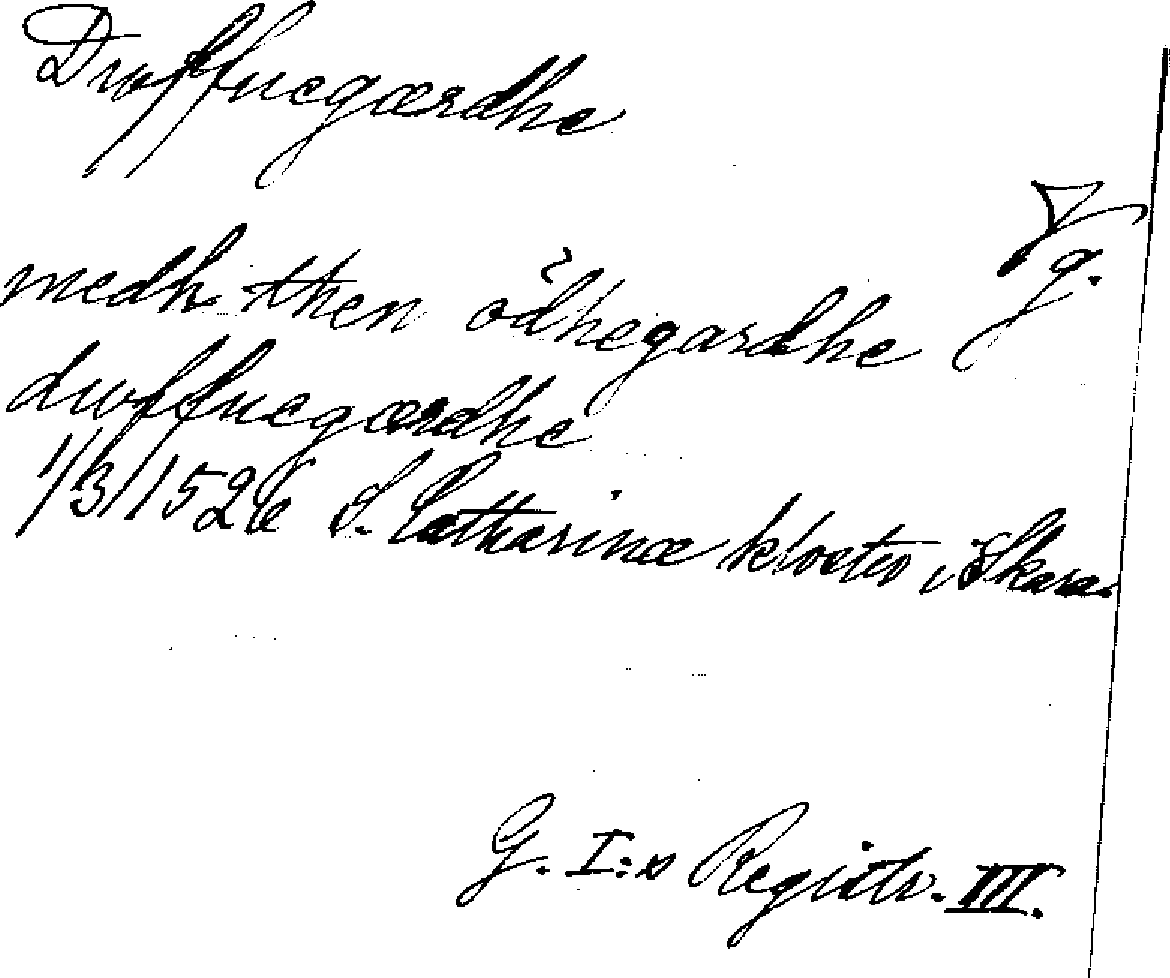 Duffnegærdhe
Vg.
medh then ödhegardhe
duffnegærdhe
1/3 1526 S. Catharinæ kloster, Skara.
G. I:s Registr. III.